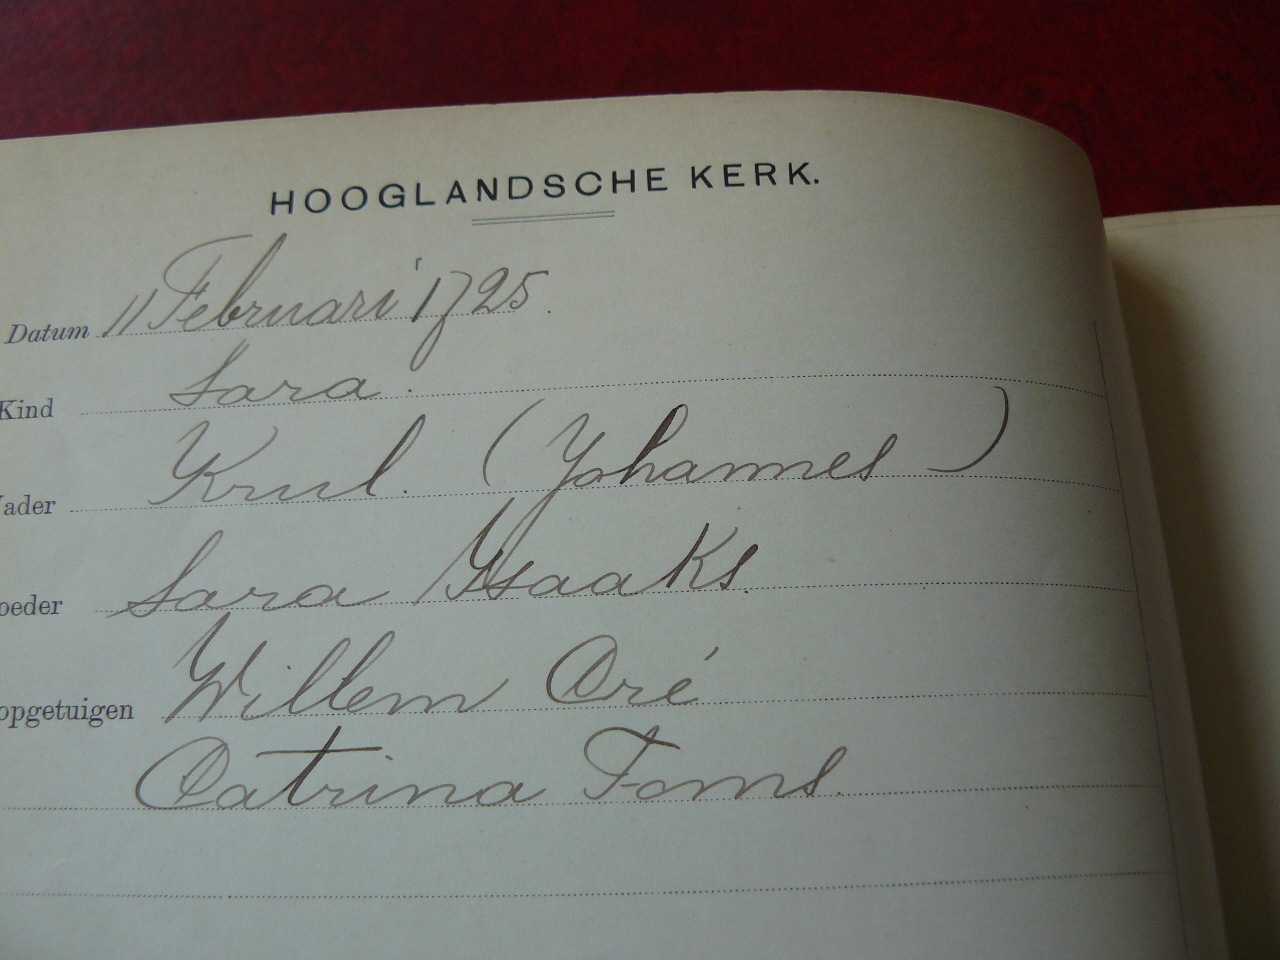 HOOGLANDSCHE KERK.
Datum 11 Februari 1725.
Kind Sara.
Vader Krul. (Johannes)
oeder Sara Ysaaks.
opgetuigen Willem Oré
Catrina Toms.